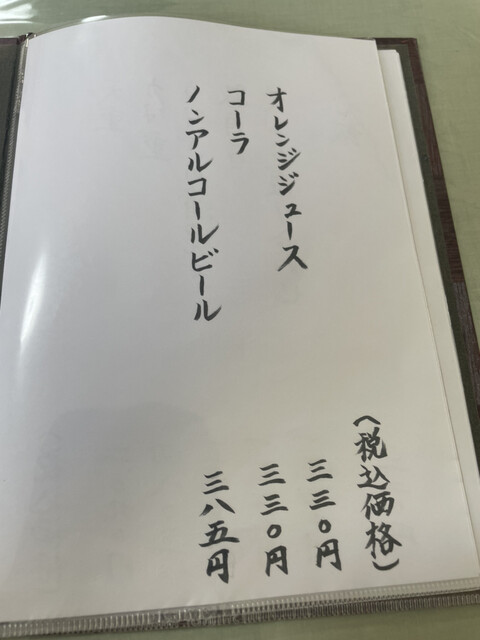 (税込価格)
オレンジジュース 三三〇円
コーラ 三三〇円
ノンアルコールビール 三八五円